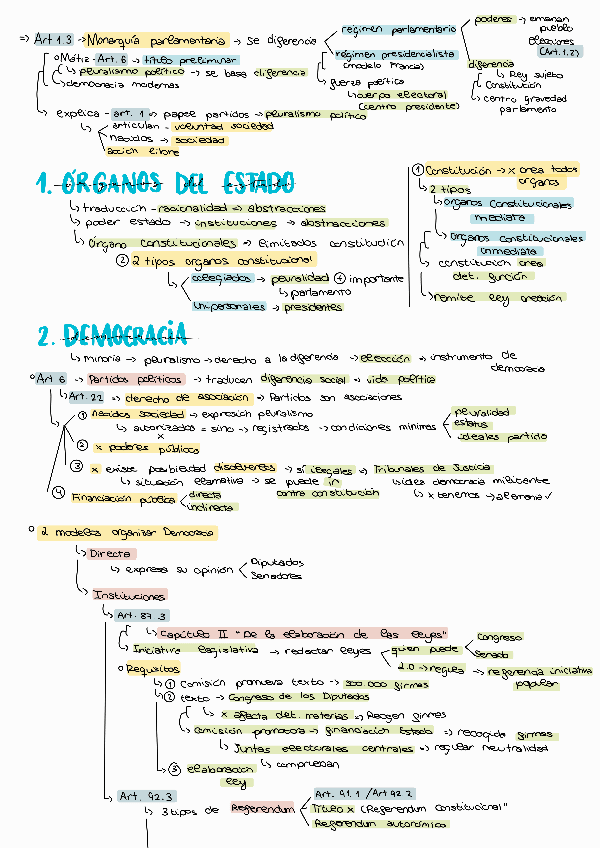 => Art 1.3 -> Monarquía parlamentaria -> se diferencia
régimen parlamentario
poderes -> emanan pueblo
electores
(Art. 1.2)
diferencia
Rey sujeto
Constitución
centro gravedad
parlamento
régimen presidencialista
(modelo Francia)
fuerza política
cuerpo electoral
(centro presidente)
Matiz - Art. 6 -> título preliminar
pluralismo político -> se basa diferencia
democracia modernas
explica - art. 1 -> papel partidos -> pluralismo político
articulan - voluntad sociedad
nacidos -> sociedad
acción libre
1. ÓRGANOS DEL ESTADO
traducción - racionalidad -> abstracciones
poder estado -> instituciones -> abstracciones
Órgano constitucionales -> limitados constitución
② 2 tipos organos constitucional
colegiados -> pluralidad + importante
parlamento
unipersonales -> presidentes
① Constitución -> x crea todos
organos
2 tipos
organos Constitucionales
mediata
Organos Constitucionales
inmediata
constitución crea
det. función
remite ley creación
2. DEMOCRACIA
minoria -> pluralismo -> derecho a la diferencia -> elección -> instrumento de
democracia
Art 6 -> Partidos políticos -> traducen diferencia social -> vida política
Art. 22 -> derecho de asociación -> Partidos son asociaciones
① Nacidos sociedad -> expresión pluralismo
autorizados = sino -> registrados -> condiciones minimas
x
pluralidad
estatus
ideales partido
② x poderes públicos
③ x existe posibilidad disolverlos -> sí ilegales -> Tribunales de Justicia
situación llamativa -> se puede ir
contra constitución
idea democracia militante
x tenemos -> alemania ✓
④ Financiación pública
directa
indirecta
2 modelos organizar Democracia
Directa
expresa su opinión
Diputados
Senadores
Instituciones
Art. 87.3
Capítulo II "De la elaboración de las leyes"
Iniciativa legislativa -> redactar leyes
quien puede
Congreso
Senado
2.0 -> regula -> referencia iniciativa
popular
Requisitos
① Comisión promueva texto -> 500.000 firmas
② texto -> Congreso de los Diputados
x afecta det. materias -> Recogen firmas
comisión promotora -> financiación Estado -> recogida firmas
Juntas electorales centrales -> regular neutralidad
comprueban
③ elaboración
ley
Art. 92.3
3 tipos de Referendum
Art. 91.1 / Art 92.2
Título x (Referendum Constitucional"
Referendum autonómico